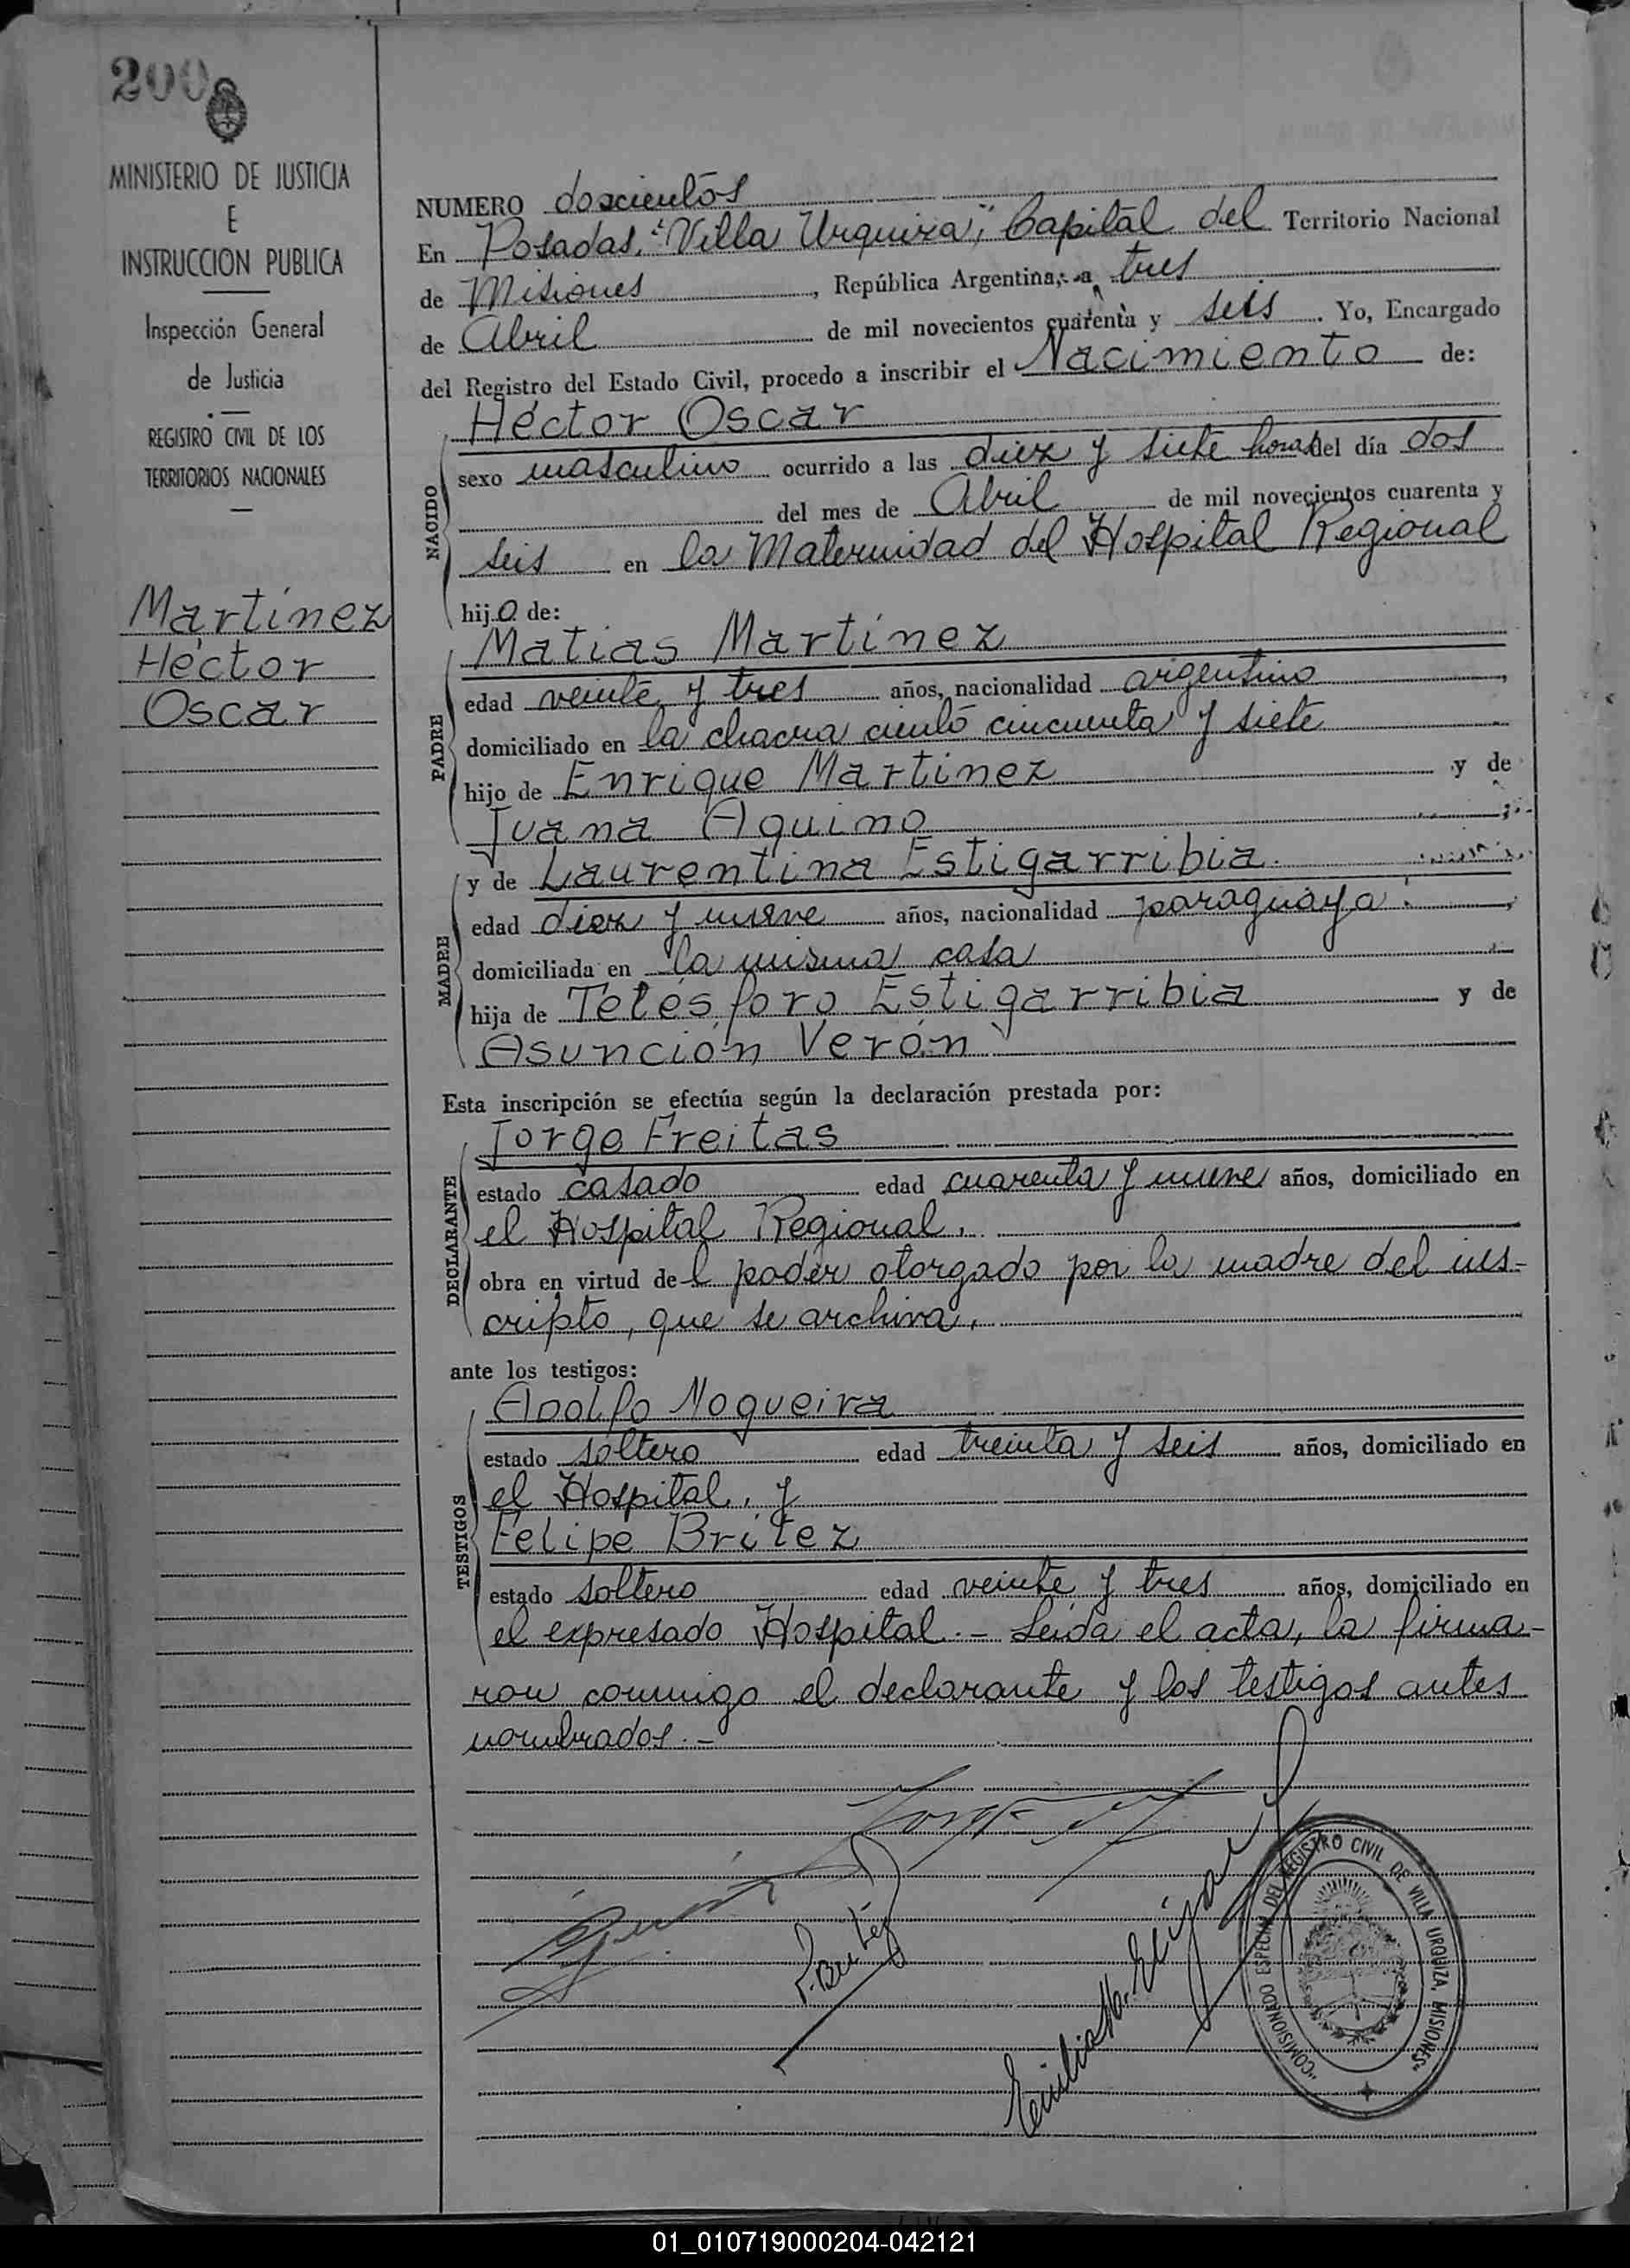 200
MINISTERIO DE JUSTICIA
E
INSTRUCCION PUBLICA
Inspección General
de Justicia
REGISTRO CIVIL DE LOS
TERRITORIOS NACIONALES
Martínez
Héctor
Oscar
NUMERO doscientos
En Posadas, "Villa Urquiza", Capital del Territorio Nacional
de Misiones, República Argentina, a tres
de Abril de mil novecientos cuarenta y seis. Yo, Encargado
del Registro del Estado Civil, procedo a inscribir el Nacimiento de:
NACIDO
Héctor Oscar
sexo masculino ocurrido a las diez y siete horas del día dos
del mes de Abril de mil novecientos cuarenta y
seis en la Maternidad del Hospital Regional
hijo de:
PADRE
Matias Martínez
edad veinte y tres años, nacionalidad argentino,
domiciliado en la chacra ciento cincuenta y siete
hijo de Enrique Martínez y de
Juana Aquino
MADRE
y de Laurentina Estigarribia.
edad diez y nueve años, nacionalidad paraguaya,
domiciliada en la misma casa
hija de Telésforo Estigarribia y de
Asunción Verón
Esta inscripción se efectúa según la declaración prestada por:
DECLARANTE
Jorge Freitas
estado casado edad cuarenta y nueve años, domiciliado en
el Hospital Regional.
obra en virtud del poder otorgado por la madre del ins-
cripto, que se archiva.
ante los testigos:
TESTIGOS
Adolfo Nogueira
estado soltero edad treinta y seis años, domiciliado en
el Hospital, y
Felipe Britez
estado soltero edad veinte y tres años, domiciliado en
el expresado Hospital.- Leída el acta, la firma-
ron conmigo el declarante y los testigos antes
nombrados.-
F. Britez
"COMISIONADO ESPECIAL DEL REGISTRO CIVIL DE VILLA URQUIZA, MISIONES"
01_010719000204-042121